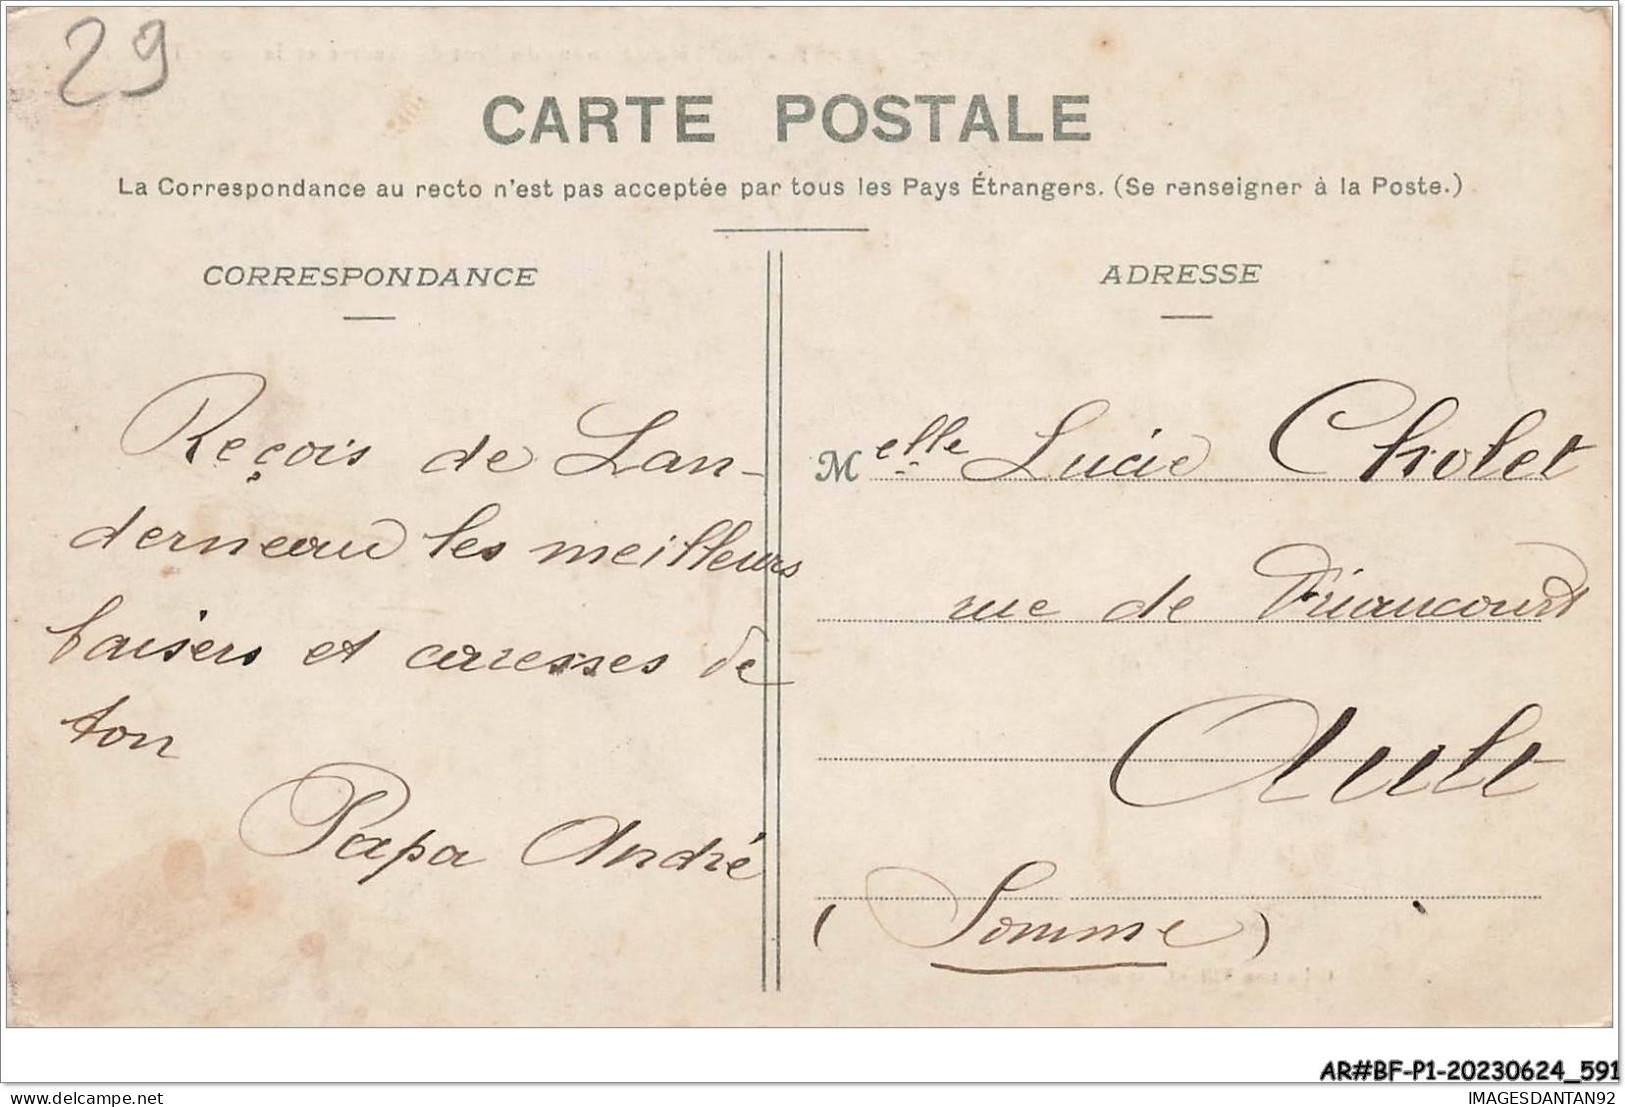 29
CARTE POSTALE
La Correspondance au recto n'est pas acceptée par tous les Pays Étrangers. (Se renseigner à la Poste.)
CORRESPONDANCE
Reçois de Lan-
derneau les meilleurs
baisers et caresses de
ton
Papa André
ADRESSE
Melle Lucie Cholet
rue de Friaucourt
Ault
(Somme)
AR#BF-P1-20230624_591
IMAGESDANTAN92